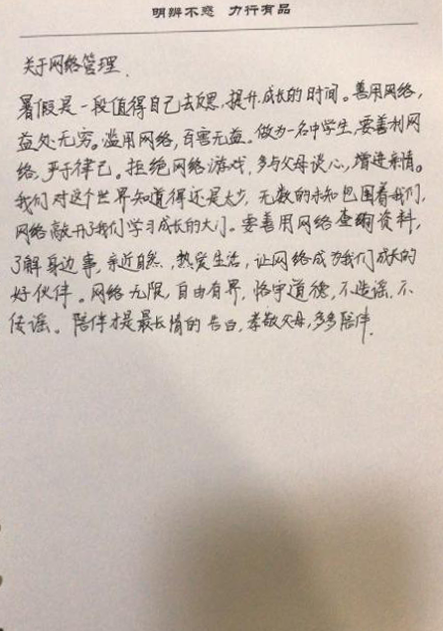 明辨不惑 力行有品
关于网络管理.
暑假是一段值得自己去反思,提升,成长的时间。善用网络,
益处无穷。滥用网络,百害无益。做为一名中学生,要善利网
络,严于律己。拒绝网络游戏,多与父母谈心,增进亲情。
我们对这个世界知道得还是太少,无数的未知包围着我们,
网络敲开了我们学习成长的大门。要善用网络查询资料,
了解身边事,亲近自然,热爱生活,让网络成为我们成长的
好伙伴。网络无限,自由有界,恪守道德,不造谣,不
传谣。陪伴才是最长情的告白,孝敬父母,多多陪伴.